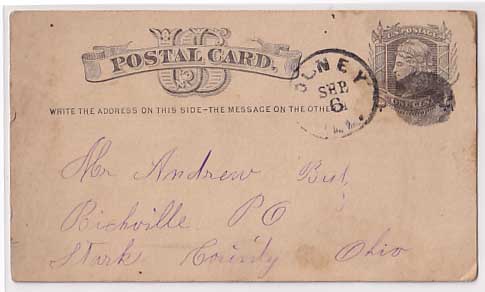 U.S. POSTAGE
US
POSTAL CARD.
OLNEY
SEP.
6
ONE CENT
WRITE THE ADDRESS ON THIS SIDE-THE MESSAGE ON THE OTHER
Mr Andrew
Richville PO
Stark County Ohio